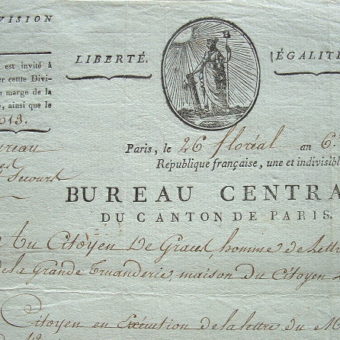 VISION
est invité à
er cette Divi-
marge de la
, ainsi que le
013.
Bureau
Secours
LIBERTÉ.
ÉGALITÉ
Paris, le 26 floréal an 6.
République française, une et indivisible
BUREAU CENTRA
DU CANTON DE PARIS.
Au Citoyen De Gracel, homme de Lettre
de la Grande Truanderie, maison du Citoyen
Citoyen en Exécution de la lettre du M